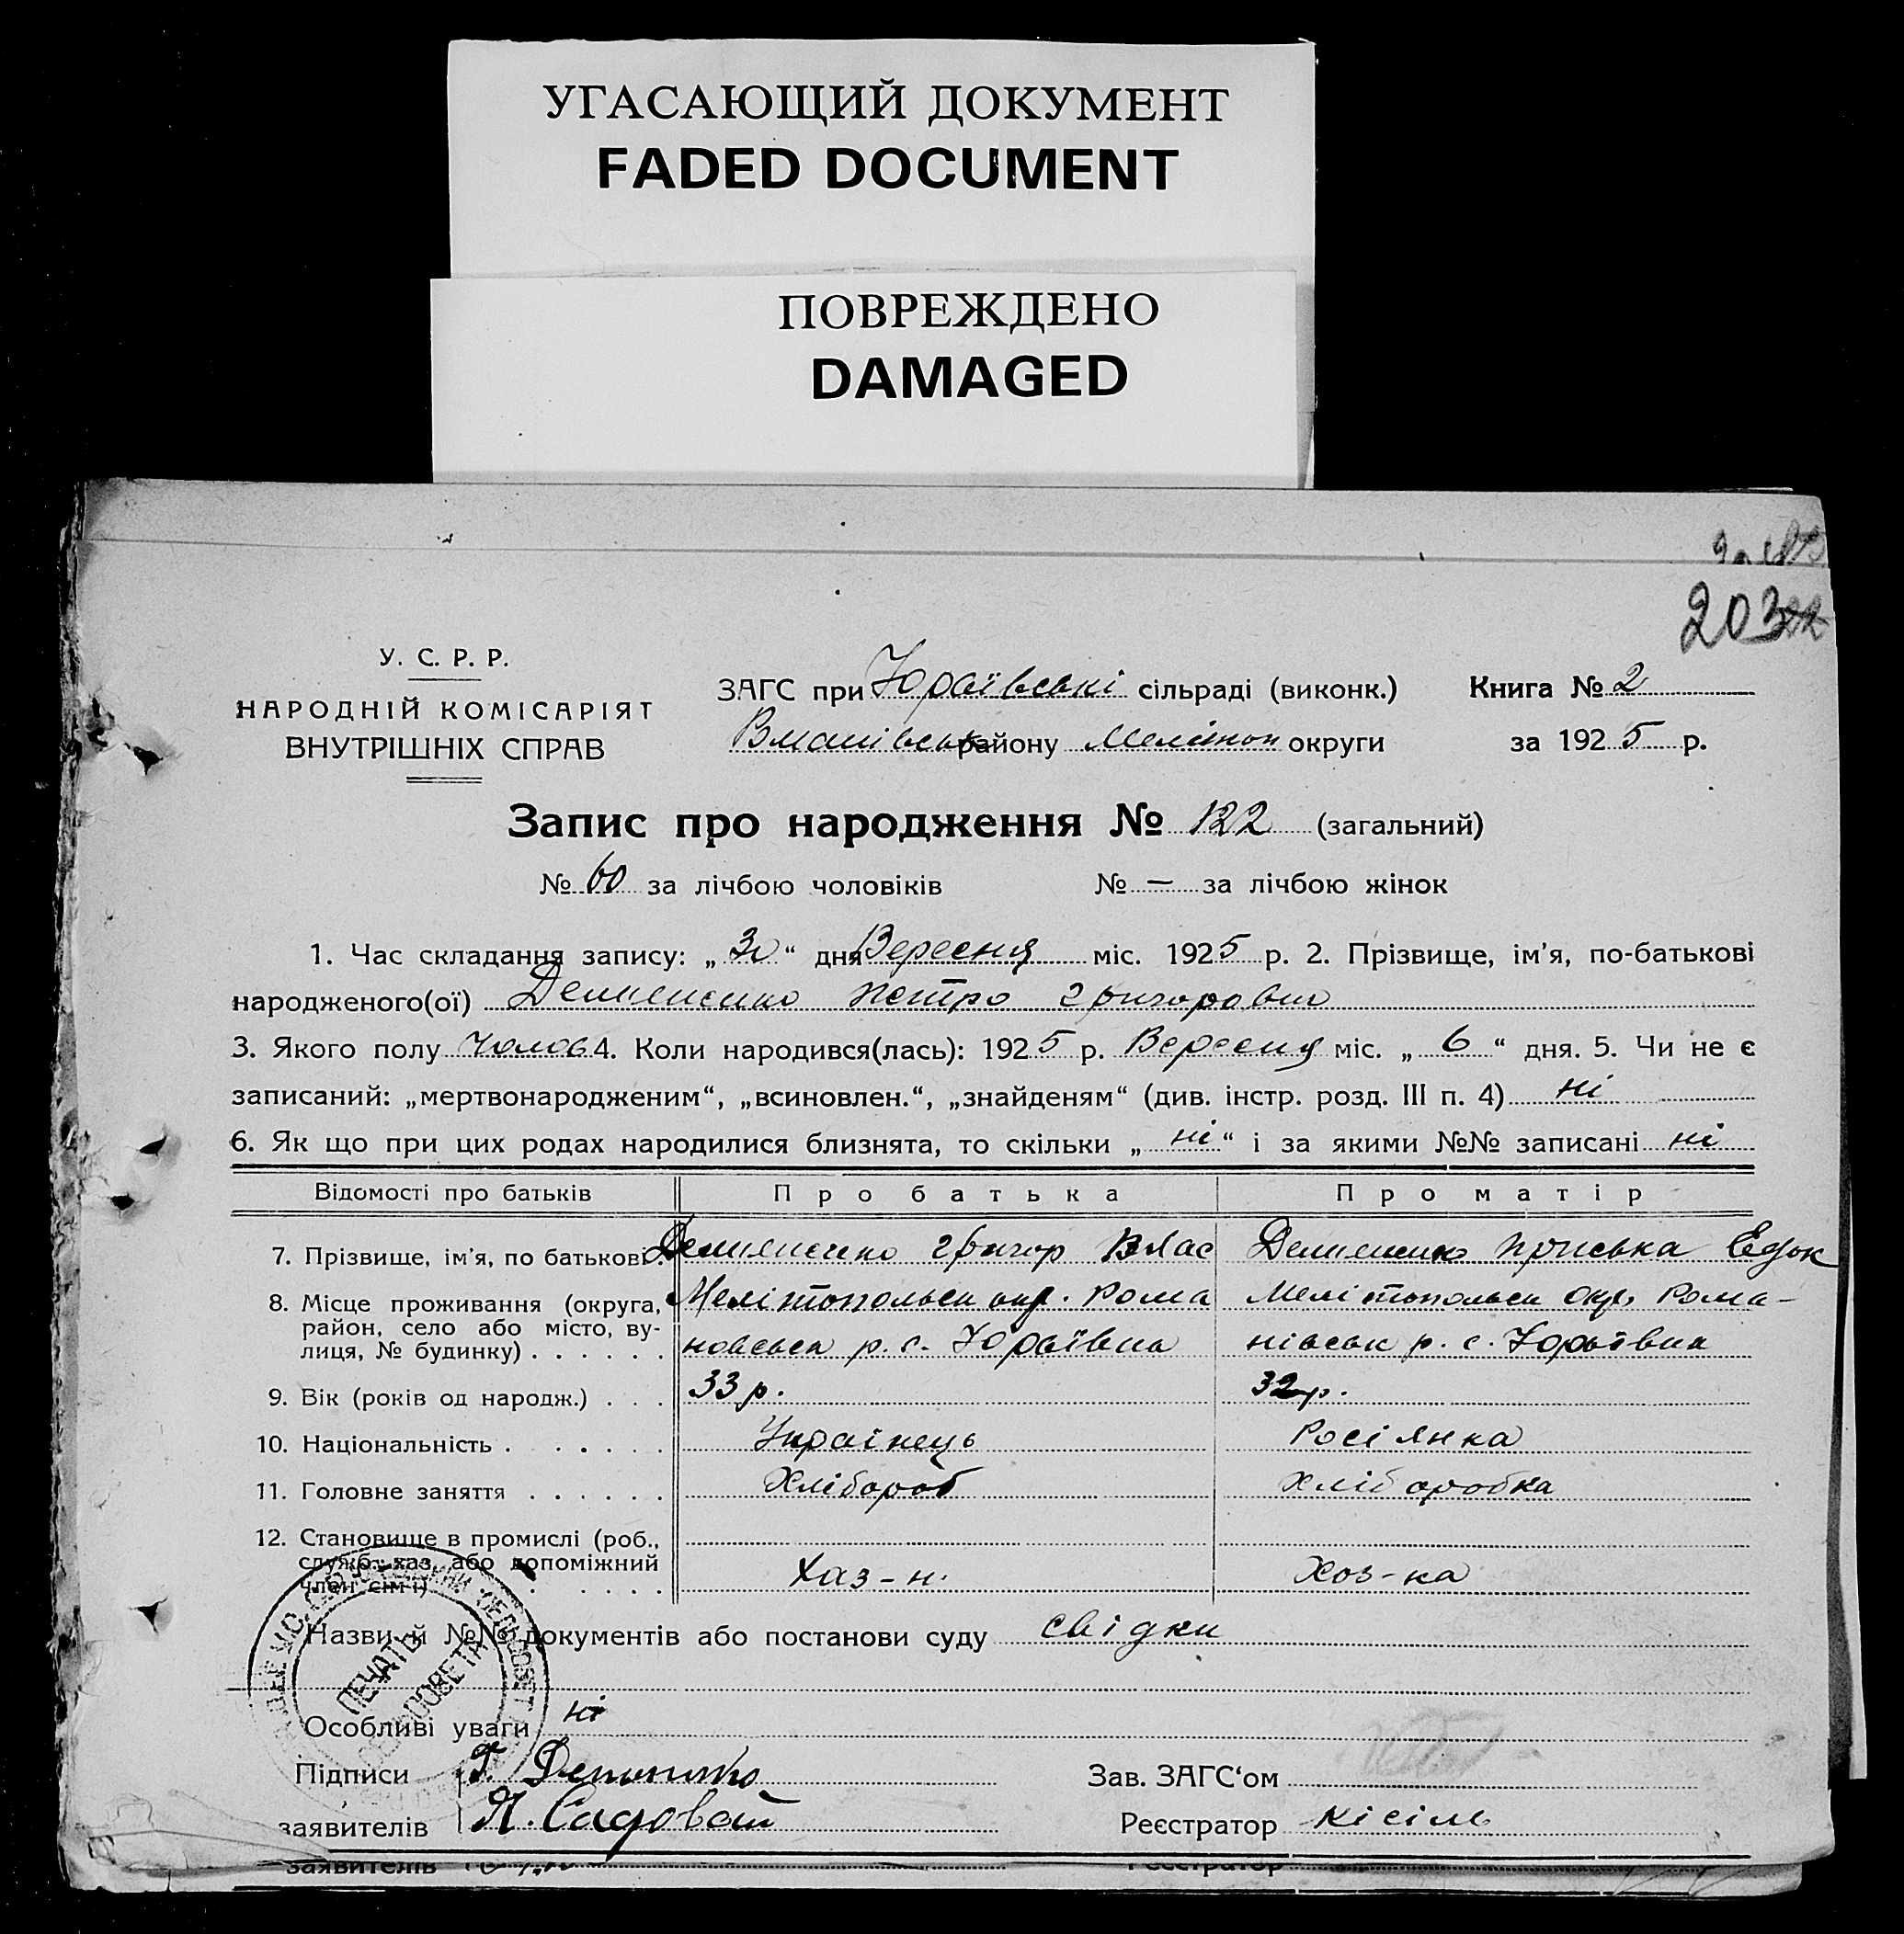 УГАСАЮЩИЙ ДОКУМЕНТ
FADED DOCUMENT
ПОВРЕЖДЕНО
DAMAGED
203
У. С. Р. Р.
НАРОДНІЙ КОМІСАРІЯТ
ВНУТРІШНІХ СПРАВ
ЗАГС при Юраївські сільраді (виконк.) Книга № 2
району Мелітоп округи за 1925 р.
Запис про народження № 122 (загальний)
№ 60 за лічбою чоловіків № — за лічбою жінок
1. Час складання запису: „30“ дня Вересня міс. 1925 р. 2. Прізвище, ім’я, по-батькові
народженого(ої) Демяненко Петро Григорович
3. Якого полу Чолов 4. Коли народився(лась): 1925 р. Вересня міс. „6“ дня. 5. Чи не є
записаний: „мертвонародженим“, „всиновлен.“, „знайденям“ (див. інстр. розд. III п. 4) ні
6. Як що при цих родах народилися близнята, то скільки „ні“ і за якими №№ записані ні
Відомості про батьків Про батька Про матір
7. Прізвище, ім’я, по батькові. Демяненко Григор Влас Демяненко Приська Евдок
8. Місце проживання (округа, Мелітопольськ окр. Рома Мелітопольськ окр. Рома-
район, село або місто, ву- новськ р. с. Юраївка нівськ р. с. Юраївка
лиця, № будинку) . . . . . .
9. Вік (років од народж.) . . . 33 р. 32 р.
10. Національність . . . . . . Українець Росіянка
11. Головне заняття . . . . . . Хлібороб Хліборобка
12. Становище в промислі (роб.,
служб., хаз. або допоміжний Хаз-н. Хоз-ка
член сім’ї)
Назви й №№ документів або постанови суду свідки
Особливі уваги ні
ПЕЧАТЬ
СЕЛЬСОВЕТА
Підписи Г. Демяненко Зав. ЗАГС‘ом
заявителів Я. Садовой Реєстратор Кісіль
заявителів Реєстратор